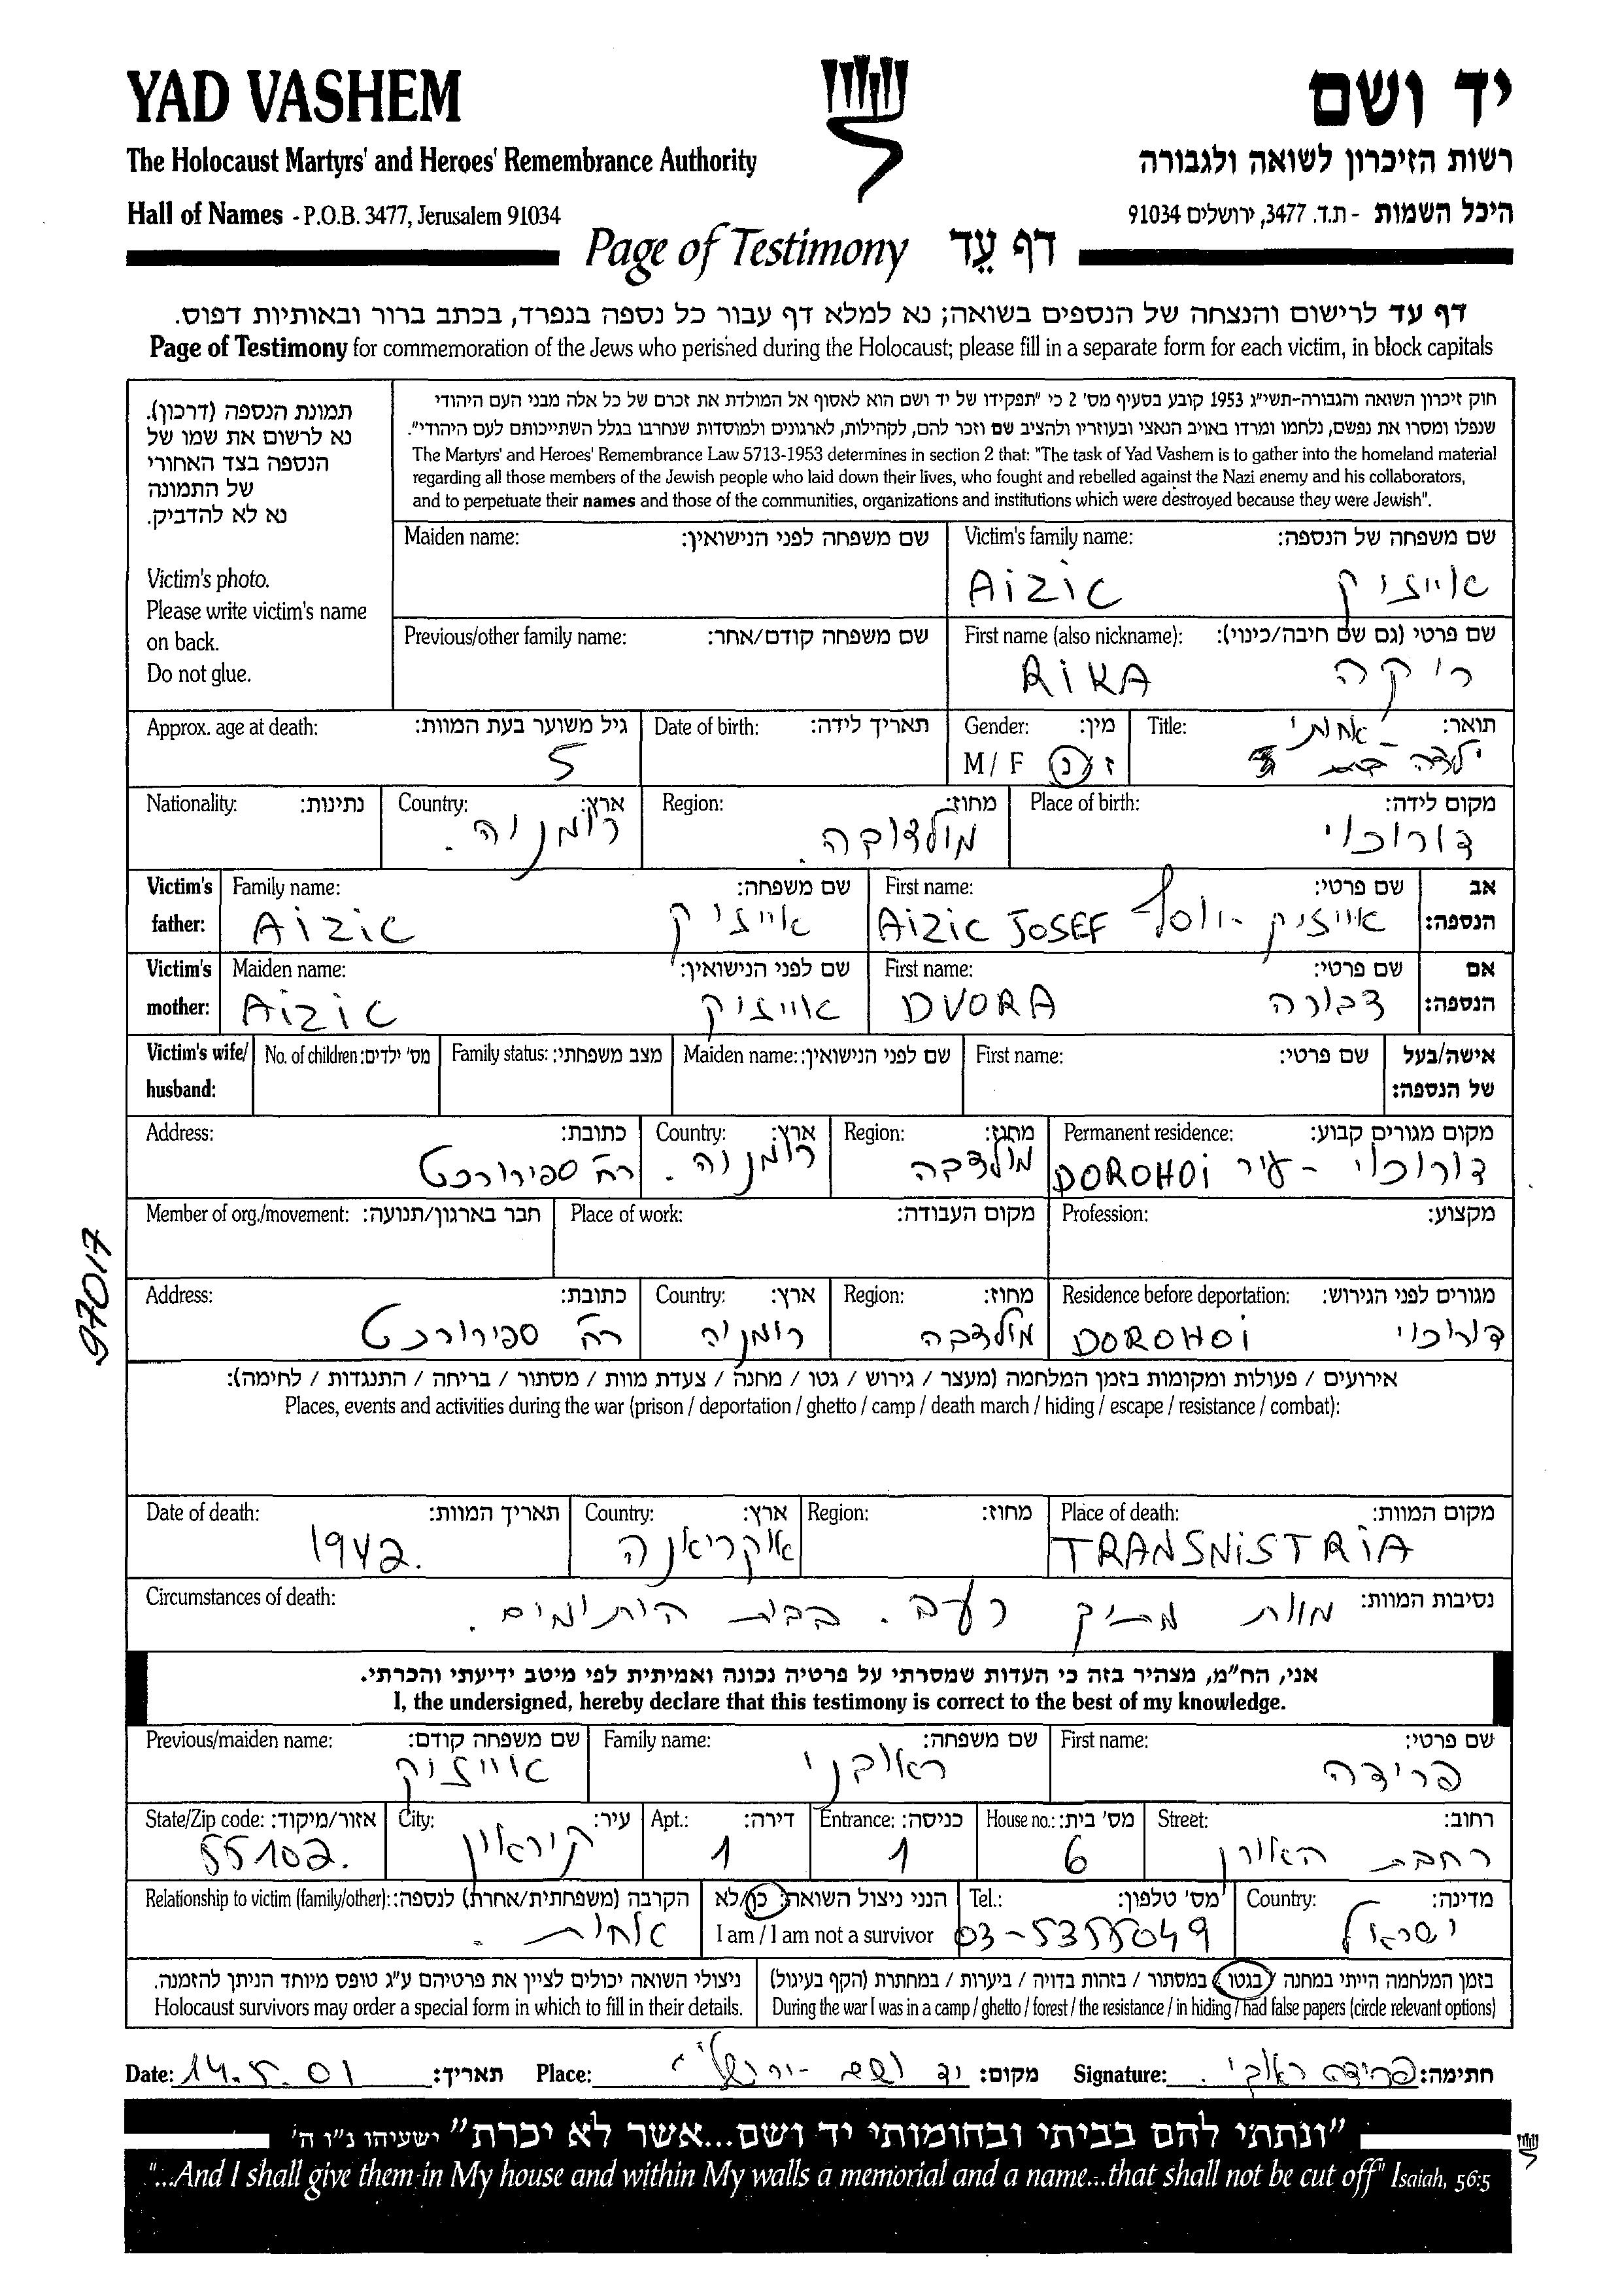 YAD VASHEM
יד ושם
The Holocaust Martyrs' and Heroes' Remembrance Authority
רשות הזיכרון לשואה ולגבורה
Hall of Names - P.O.B. 3477, Jerusalem 91034
היכל השמות - ת.ד. 3477, ירושלים 91034
Page of Testimony דף עֵד
דף עד לרישום והנצחה של הנספים בשואה; נא למלא דף עבור כל נספה בנפרד, בכתב ברור ובאותיות דפוס.
Page of Testimony for commemoration of the Jews who perished during the Holocaust; please fill in a separate form for each victim, in block capitals
תמונת הנספה (דרכון).
נא לרשום את שמו של
הנספה בצד האחורי
של התמונה
נא לא להדביק.
Victim's photo.
Please write victim's name
on back.
Do not glue.
חוק זיכרון השואה והגבורה-תשי"ג 1953 קובע בסעיף מס' 2 כי "תפקידו של יד ושם הוא לאסוף אל המולדת את זכרם של כל אלה מבני העם היהודי
שנפלו ומסרו את נפשם, נלחמו ומרדו באויב הנאצי ובעוזריו ולהציב שם וזכר להם, לקהילות, לארגונים ולמוסדות שנחרבו בגלל השתייכותם לעם היהודי".
The Martyrs' and Heroes' Remembrance Law 5713-1953 determines in section 2 that: "The task of Yad Vashem is to gather into the homeland material
regarding all those members of the Jewish people who laid down their lives, who fought and rebelled against the Nazi enemy and his collaborators,
and to perpetuate their names and those of the communities, organizations and institutions which were destroyed because they were Jewish".
Victim's family name: שם משפחה של הנספה:
AiZiC אייזיק
Maiden name: שם משפחה לפני הנישואין:
First name (also nickname): שם פרטי (גם שם חיבה/כינוי):
RiKA ריקה
Previous/other family name: שם משפחה קודם/אחר:
Title: תואר:
אחותי
ילדה בת 5
Gender: מין:
M / F ז / נ
Date of birth: תאריך לידה:
Approx. age at death: גיל משוער בעת המוות:
5
Place of birth: מקום לידה:
דורוכוי
Region: מחוז:
מולדובה.
Country: ארץ:
רומניה.
Nationality: נתינות:
Victim's father: אב הנספה:
First name: שם פרטי:
AiZiC JOSEF אייזיק יוסף
Family name: שם משפחה:
AiZiC אייזיק
Victim's mother: אם הנספה:
First name: שם פרטי:
DVORA דבורה
Maiden name: שם לפני הנישואין:
AiZiC אייזיק
Victim's wife/ husband: אישה/בעל של הנספה:
First name: שם פרטי:
Maiden name: שם לפני הנישואין:
Family status: מצב משפחתי:
No. of children: מס' ילדים:
Permanent residence: מקום מגורים קבוע:
DOROHOi דורוכוי - עיר
Region: מחוז:
מולדבה
Country: ארץ:
רומניה.
Address: כתובת:
רח' ספירורכט
Profession: מקצוע:
Place of work: מקום העבודה:
Member of org./movement: חבר בארגון/תנועה:
Residence before deportation: מגורים לפני הגירוש:
DOROHOi דורוכוי
Region: מחוז:
מולדבה
Country: ארץ:
רומניה
Address: כתובת:
רח' ספירורכט
97017
אירועים / פעולות ומקומות בזמן המלחמה (מעצר / גירוש / גטו / מחנה / צעדת מוות / מסתור / בריחה / התנגדות / לחימה):
Places, events and activities during the war (prison / deportation / ghetto / camp / death march / hiding / escape / resistance / combat):
Place of death: מקום המוות:
TRANSNiSTRiA
Region: מחוז:
Country: ארץ:
אוקריאנה
Date of death: תאריך המוות:
1942.
Circumstances of death: נסיבות המוות:
מוות רעב. בבית היתומים.
אני, הח"מ, מצהיר בזה כי העדות שמסרתי על פרטיה נכונה ואמיתית לפי מיטב ידיעתי והכרתי.
I, the undersigned, hereby declare that this testimony is correct to the best of my knowledge.
First name: שם פרטי:
פרידה
Family name: שם משפחה:
ראובני
Previous/maiden name: שם משפחה קודם:
אייזיק
Street: רחוב:
רחבת האורן
House no.: מס' בית:
6
Entrance: כניסה:
1
Apt.: דירה:
1
City: עיר:
קיראון
State/Zip code: אזור/מיקוד:
55102.
Country: מדינה:
ישראל
Tel.: מס' טלפון:
03-5355049
הנני ניצול השואה: כן/לא
I am / I am not a survivor
Relationship to victim (family/other): הקרבה (משפחתית/אחרת) לנספה:
אחות.
בזמן המלחמה הייתי במחנה / בגטו / במסתור / בזהות בדויה / ביערות / במחתרת (הקף בעיגול)
During the war I was in a camp / ghetto / forest / the resistance / in hiding / had false papers (circle relevant options)
ניצולי השואה יכולים לציין את פרטיהם ע"ג טופס מיוחד הניתן להזמנה.
Holocaust survivors may order a special form in which to fill in their details.
Date: 14.5.01 תאריך: Place: יד ושם - ירושלים מקום: Signature: פרידה ראובני חתימה:
"ונתתי להם בביתי ובחומותי יד ושם...אשר לא יכרת" ישעיהו נ"ו ה'
"...And I shall give them in My house and within My walls a memorial and a name...that shall not be cut off" Isaiah, 56:5